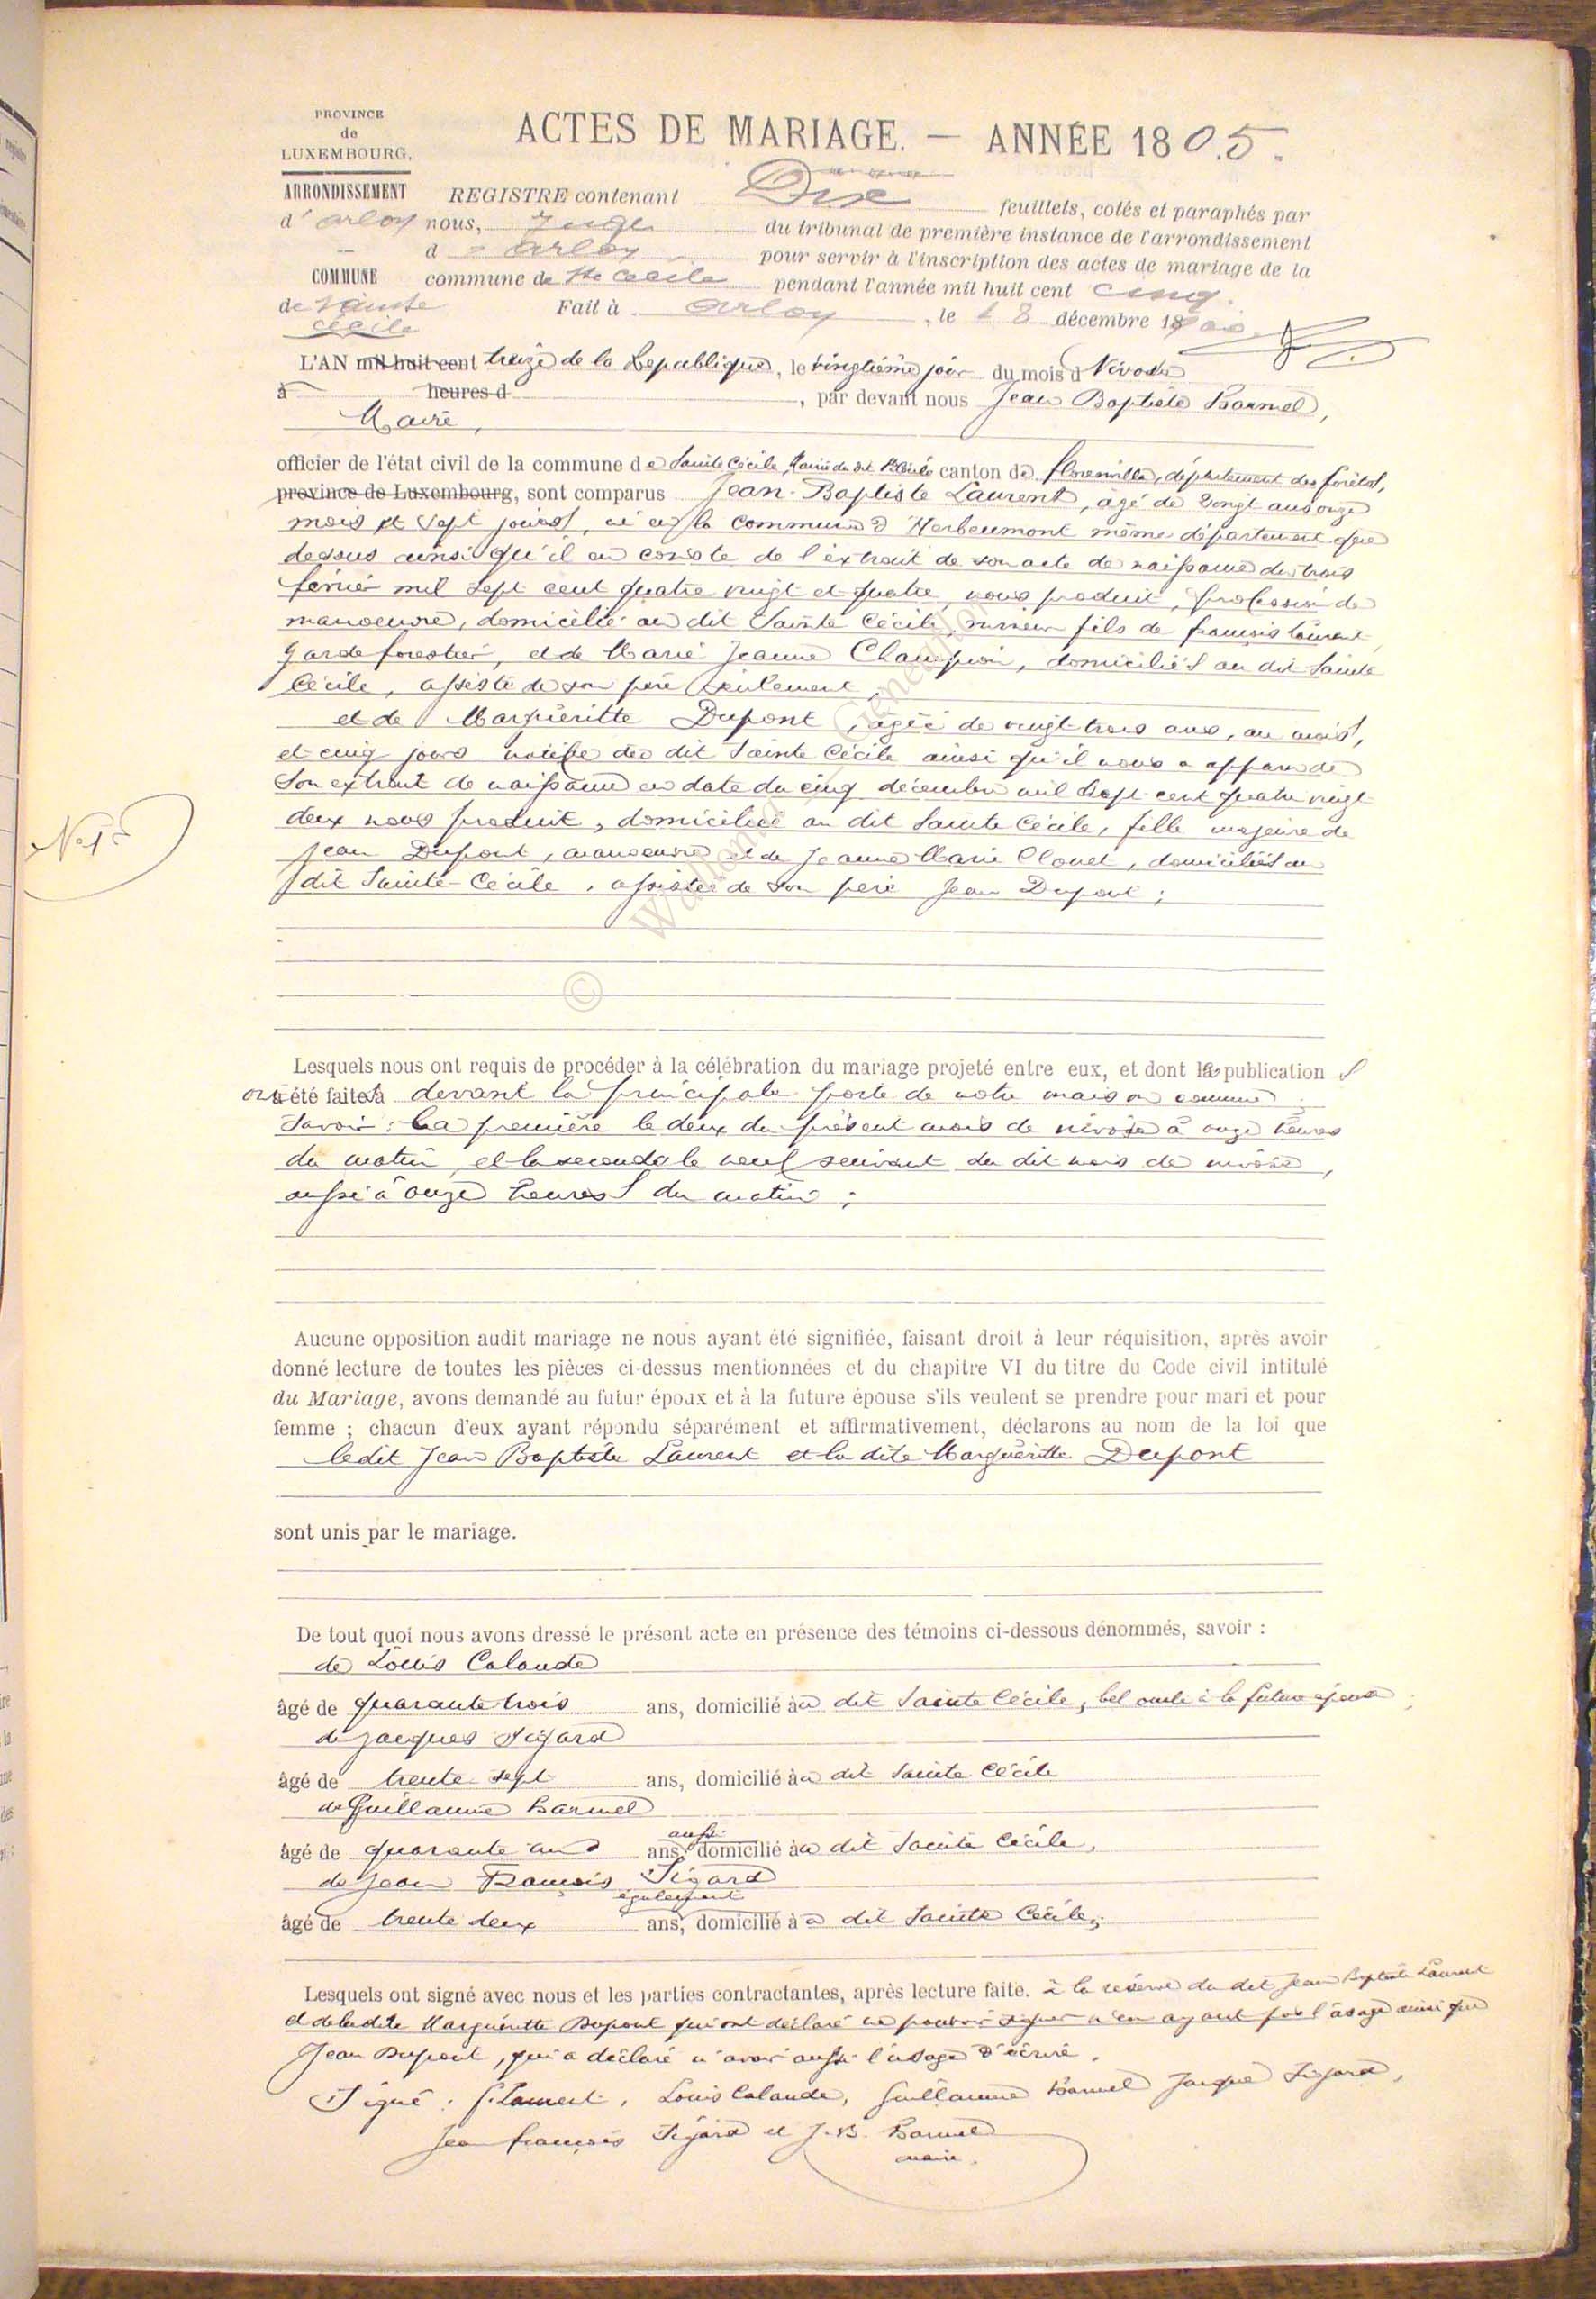 PROVINCE
de
LUXEMBOURG.
ACTES DE MARIAGE. — ANNÉE 1805.
ARRONDISSEMENT
d'Arlon
COMMUNE
de Sainte
Cécile
REGISTRE contenant Dix feuillets, cotés et paraphés par
nous, Juge du tribunal de première instance de l'arrondissement
d'Arlon pour servir à l'inscription des actes de mariage de la
commune de Ste Cécile pendant l'année mil huit cent cinq.
Fait à Arlon, le 18 décembre 18
L'AN mil huit cent treize de la République, le vingtième jour du mois d Nivose
à heures d , par devant nous Jean Baptiste Barmel,
Maire,
officier de l'état civil de la commune de Sainte Cécile, Mairie du dit Ste Cécile canton de florenville, département des forêts,
province de Luxembourg, sont comparus Jean-Baptiste Laurent, âgé de vingt ans onze
mois et sept jours, né en la commune d'Herbeumont même département que
dessus ainsi qu'il en conste de l'extrait de son acte de naissance du trois
février mil sept cent quatre vingt et quatre, nous produit, profession de
manoeuvre, domicilié au dit Sainte Cécile, mineur fils de françois Laurent
garde forestier, et de Marie Jeanne Champion, domiciliés au dit Sainte
Cécile, assisté de son père seulement,
et de Marguëritte Dupont, agée de vingt trois ans, un mois,
et cinq jours native de dit Sainte Cécile ainsi qu'il nous a apparu de
son extrait de naissance en date du cinq décembre mil sept cent quatre vingt
deux nous produit, domiciliée au dit Sainte Cécile, fille majeure de
Jean Dupont, manoeuvre et de Jeanne Marie Clouet, domiciliés au
dit Sainte-Cécile, assistée de son père Jean Dupont;
No 1
Lesquels nous ont requis de procéder à la célébration du mariage projeté entre eux, et dont les publications
ont été faites à devant la principale porte de notre maison commune
Savoir: La première le deux du présent mois de nivôse à onze heures
du matin, et la seconde le neuf suivant du dit mois de nivôse,
aussi à onze heures du matin;
Aucune opposition audit mariage ne nous ayant été signifiée, faisant droit à leur réquisition, après avoir
donné lecture de toutes les pièces ci-dessus mentionnées et du chapitre VI du titre du Code civil intitulé
du Mariage, avons demandé au futur époux et à la future épouse s'ils veulent se prendre pour mari et pour
femme ; chacun d'eux ayant répondu séparément et affirmativement, déclarons au nom de la loi que
le dit Jean Baptiste Laurent et la dite Marguëritte Dupont
sont unis par le mariage.
De tout quoi nous avons dressé le présent acte en présence des témoins ci-dessous dénommés, savoir :
de Louis Calande
âgé de quarante trois ans, domicilié au dit Sainte Cécile, bel oncle à la future épouse;
de Jacques Sigard
âgé de trente-sept ans, domicilié au dit Sainte Cécile
de Guillaume Barmel
aussi
âgé de quarante ans, domicilié au dit Sainte Cécile,
de Jean François Sigard
également
âgé de trente deux ans, domicilié à au dit Sainte Cécile;
Lesquels ont signé avec nous et les parties contractantes, après lecture faite. à la réserve du dit Jean Baptiste Laurent
et de la dite Marguëritte Dupont qui ont déclaré ne pouvoir signer n'en ayant pas l'usage ainsi que
Jean Dupont, qui a déclaré n'avoir aussi l'usage d'écrire.
Signé: f. Laurent, Louis Calande, Guillaume Barmel Jacque Sigard,
Jean françois Sigard et J.B. Barmel
maire.
©